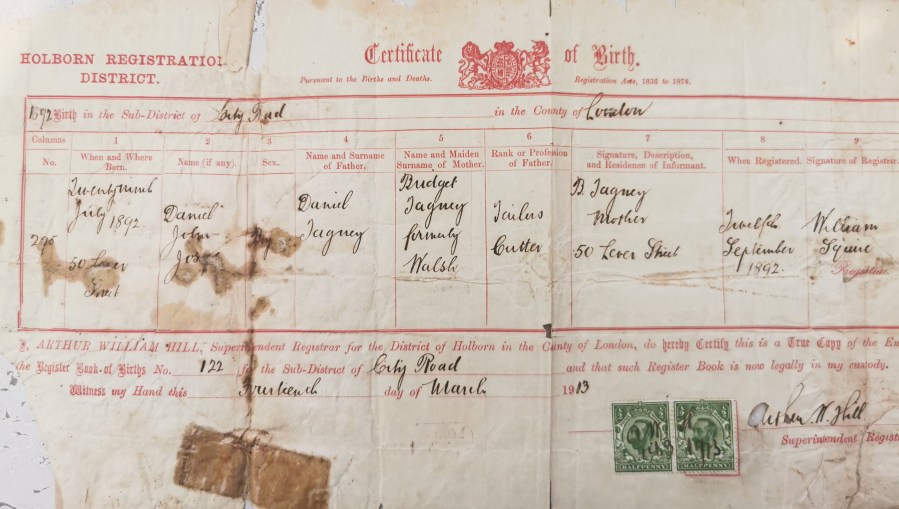 HOLBORN REGISTRATION
DISTRICT.
Certificate of Birth.
Pursuant to the Births and Deaths. Registration Acts, 1836 to 1874.
1892 Birth in the Sub-District of City Road in the County of London
Columns 1 2 3 4 5 6 7 8 9
No. When and Where Born. Name (if any). Sex. Name and Surname of Father. Name and Maiden Surname of Mother. Rank or Profession of Father. Signature, Description, and Residence of Informant. When Registered. Signature of Registrar.
Twentyninth
July 1892
50 Lever
Street
Daniel
John
Daniel
Jagney
Bridget
Jagney
formerly
Walsh
Tailors
Cutter
B. Jagney
Mother
50 Lever Street
Twelfth
September
1892.
William
Squire
Registrar
I, ARTHUR WILLIAM HILL, Superintendent Registrar for the District of Holborn in the County of London, do hereby Certify this is a True Copy of the
the Register Book of Births No. 122 for the Sub-District of City Road and that such Register Book is now legally in my custody.
Witness my Hand this Fourteenth day of March 1913
Arthur W. Hill
Superintendent
HALFPENNY HALFPENNY